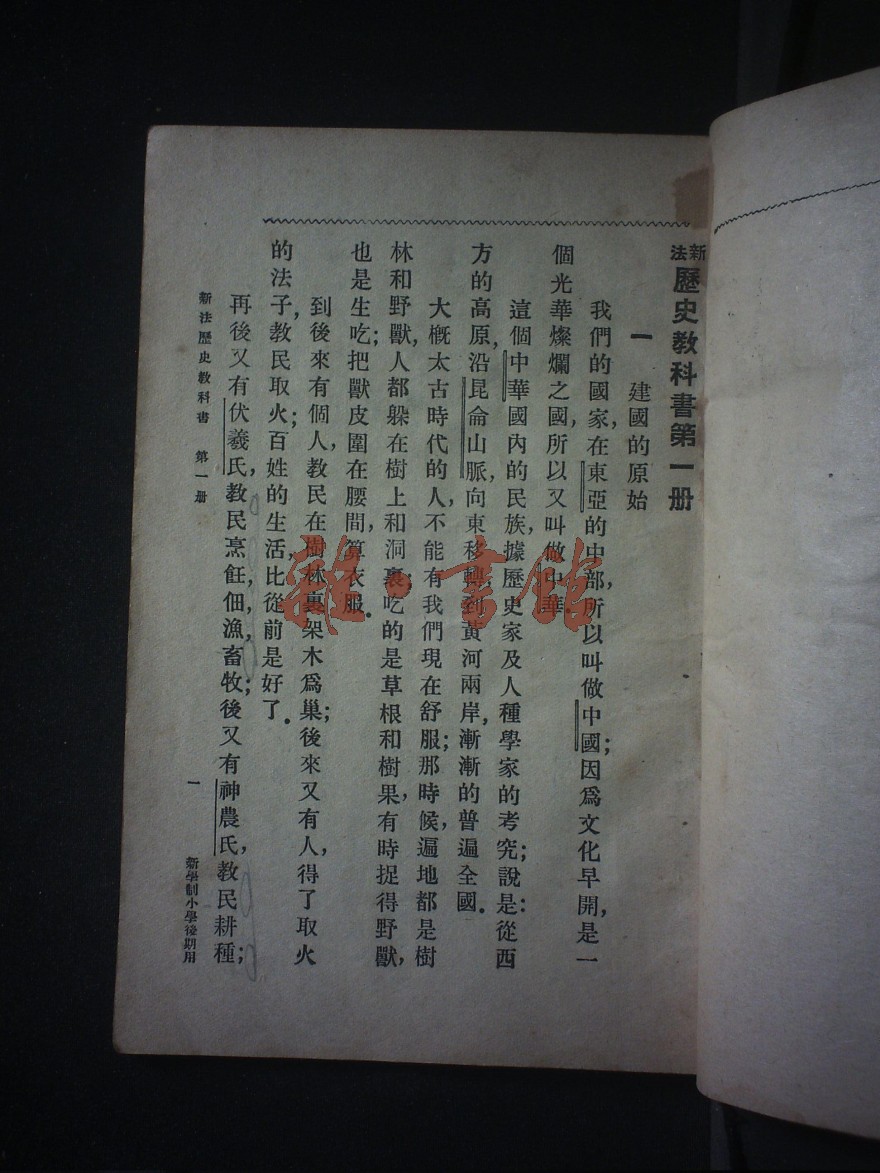 新法歷史教科書第一册
一 建國的原始
我們的國家,在東亞的中部,所以叫做中國;因爲文化早開,是一
個光華燦爛之國,所以又叫做中華。
這個中華國內的民族,據歷史家及人種學家的考究;說是:從西
方的高原,沿昆侖山脈,向東移轉到黃河兩岸,漸漸的普遍全國。
大概太古時代的人,不能有我們現在舒服;那時候,遍地都是樹
林和野獸,人都躲在樹上和洞裏,吃的是草根和樹果,有時捉得野獸,
也是生吃;把獸皮圍在腰間,算衣服。
到後來有個人,教民在樹林裏架木爲巢;後來又有人,得了取火
的法子,教民取火;百姓的生活,比從前是好了。
再後又有伏羲氏,教民烹飪,佃漁,畜牧;後又有神農氏,教民耕種;
新法歷史教科書 第一册
一
新學制小學後期用
雜·書館